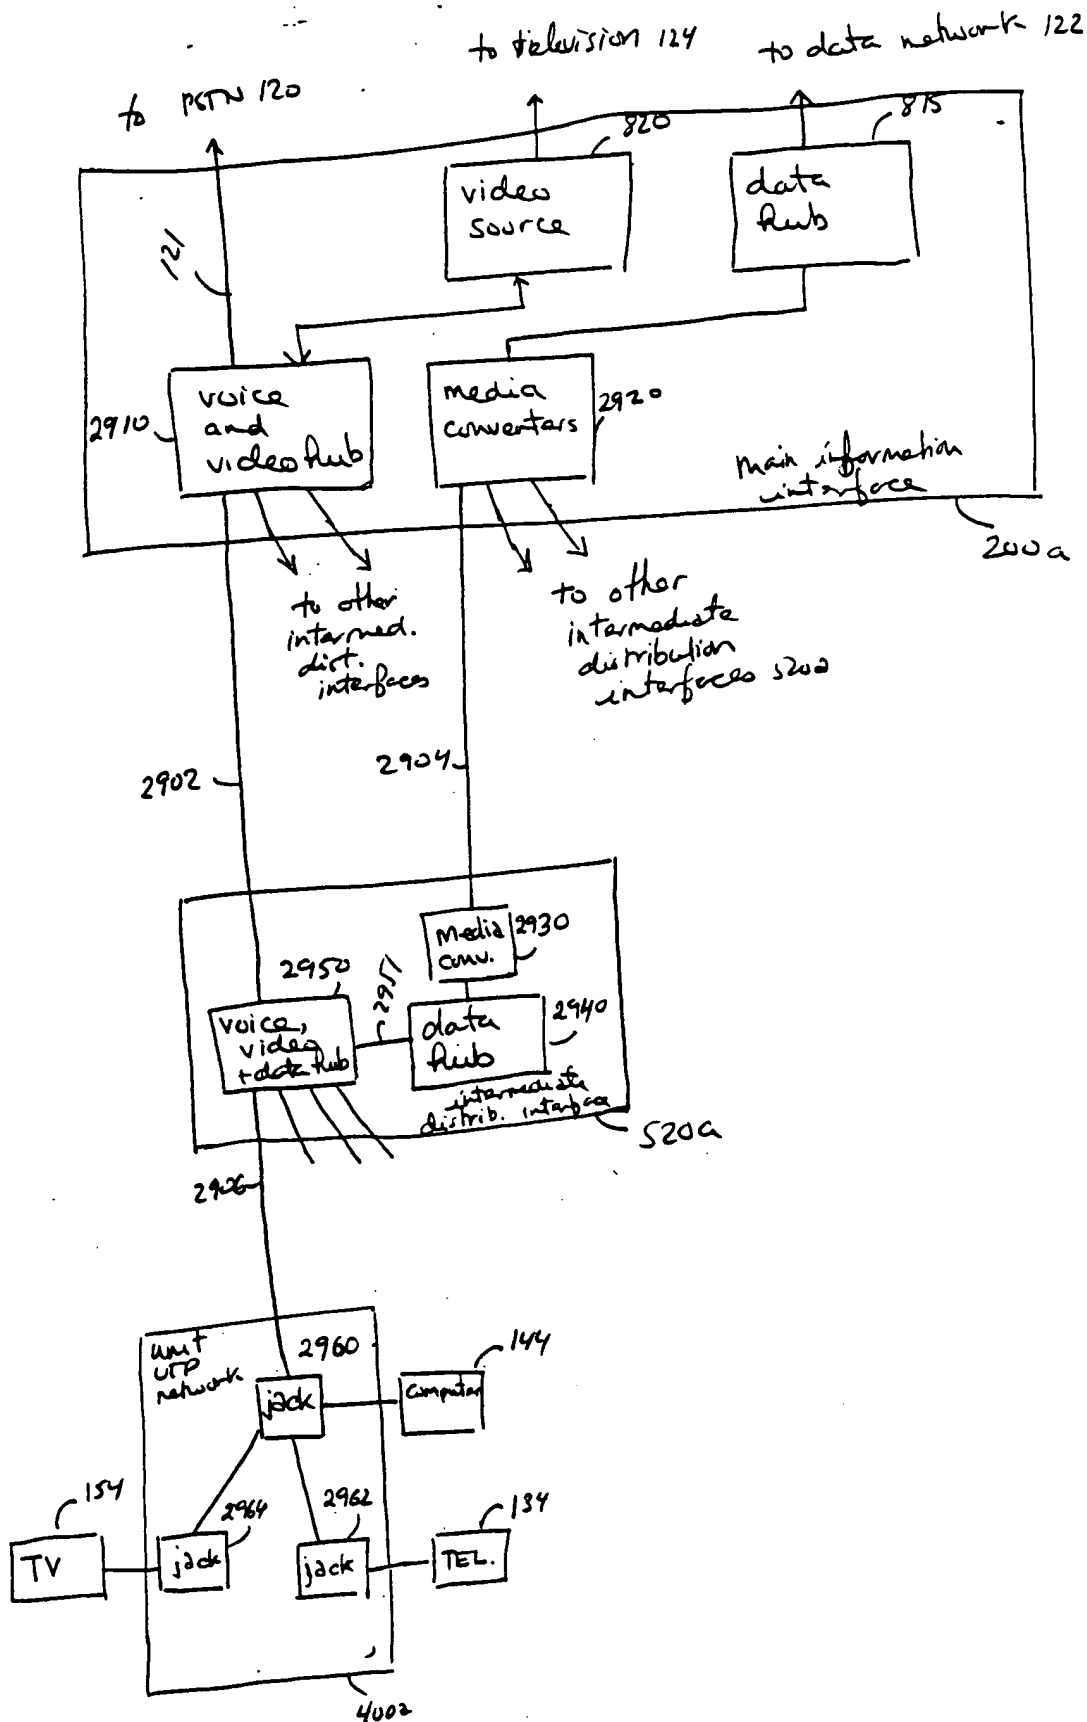 to PSTN 120
to television 124
to data network 122
820
875
video
source
data
hub
121
voice
and
video hub
2910
media
converters
2920
main information
interface
200a
to other
intermed.
dist.
interfaces
to other
intermediate
distribution
interfaces 520a
2902
2904
media
conv.
2930
2950
2951
voice,
video
+ data hub
data
hub
2940
intermediate
distrib. interface
520a
2906
unit
UTP
network
2960
jack
computer
144
154
2964
2962
134
TV
jack
jack
TEL.
400a